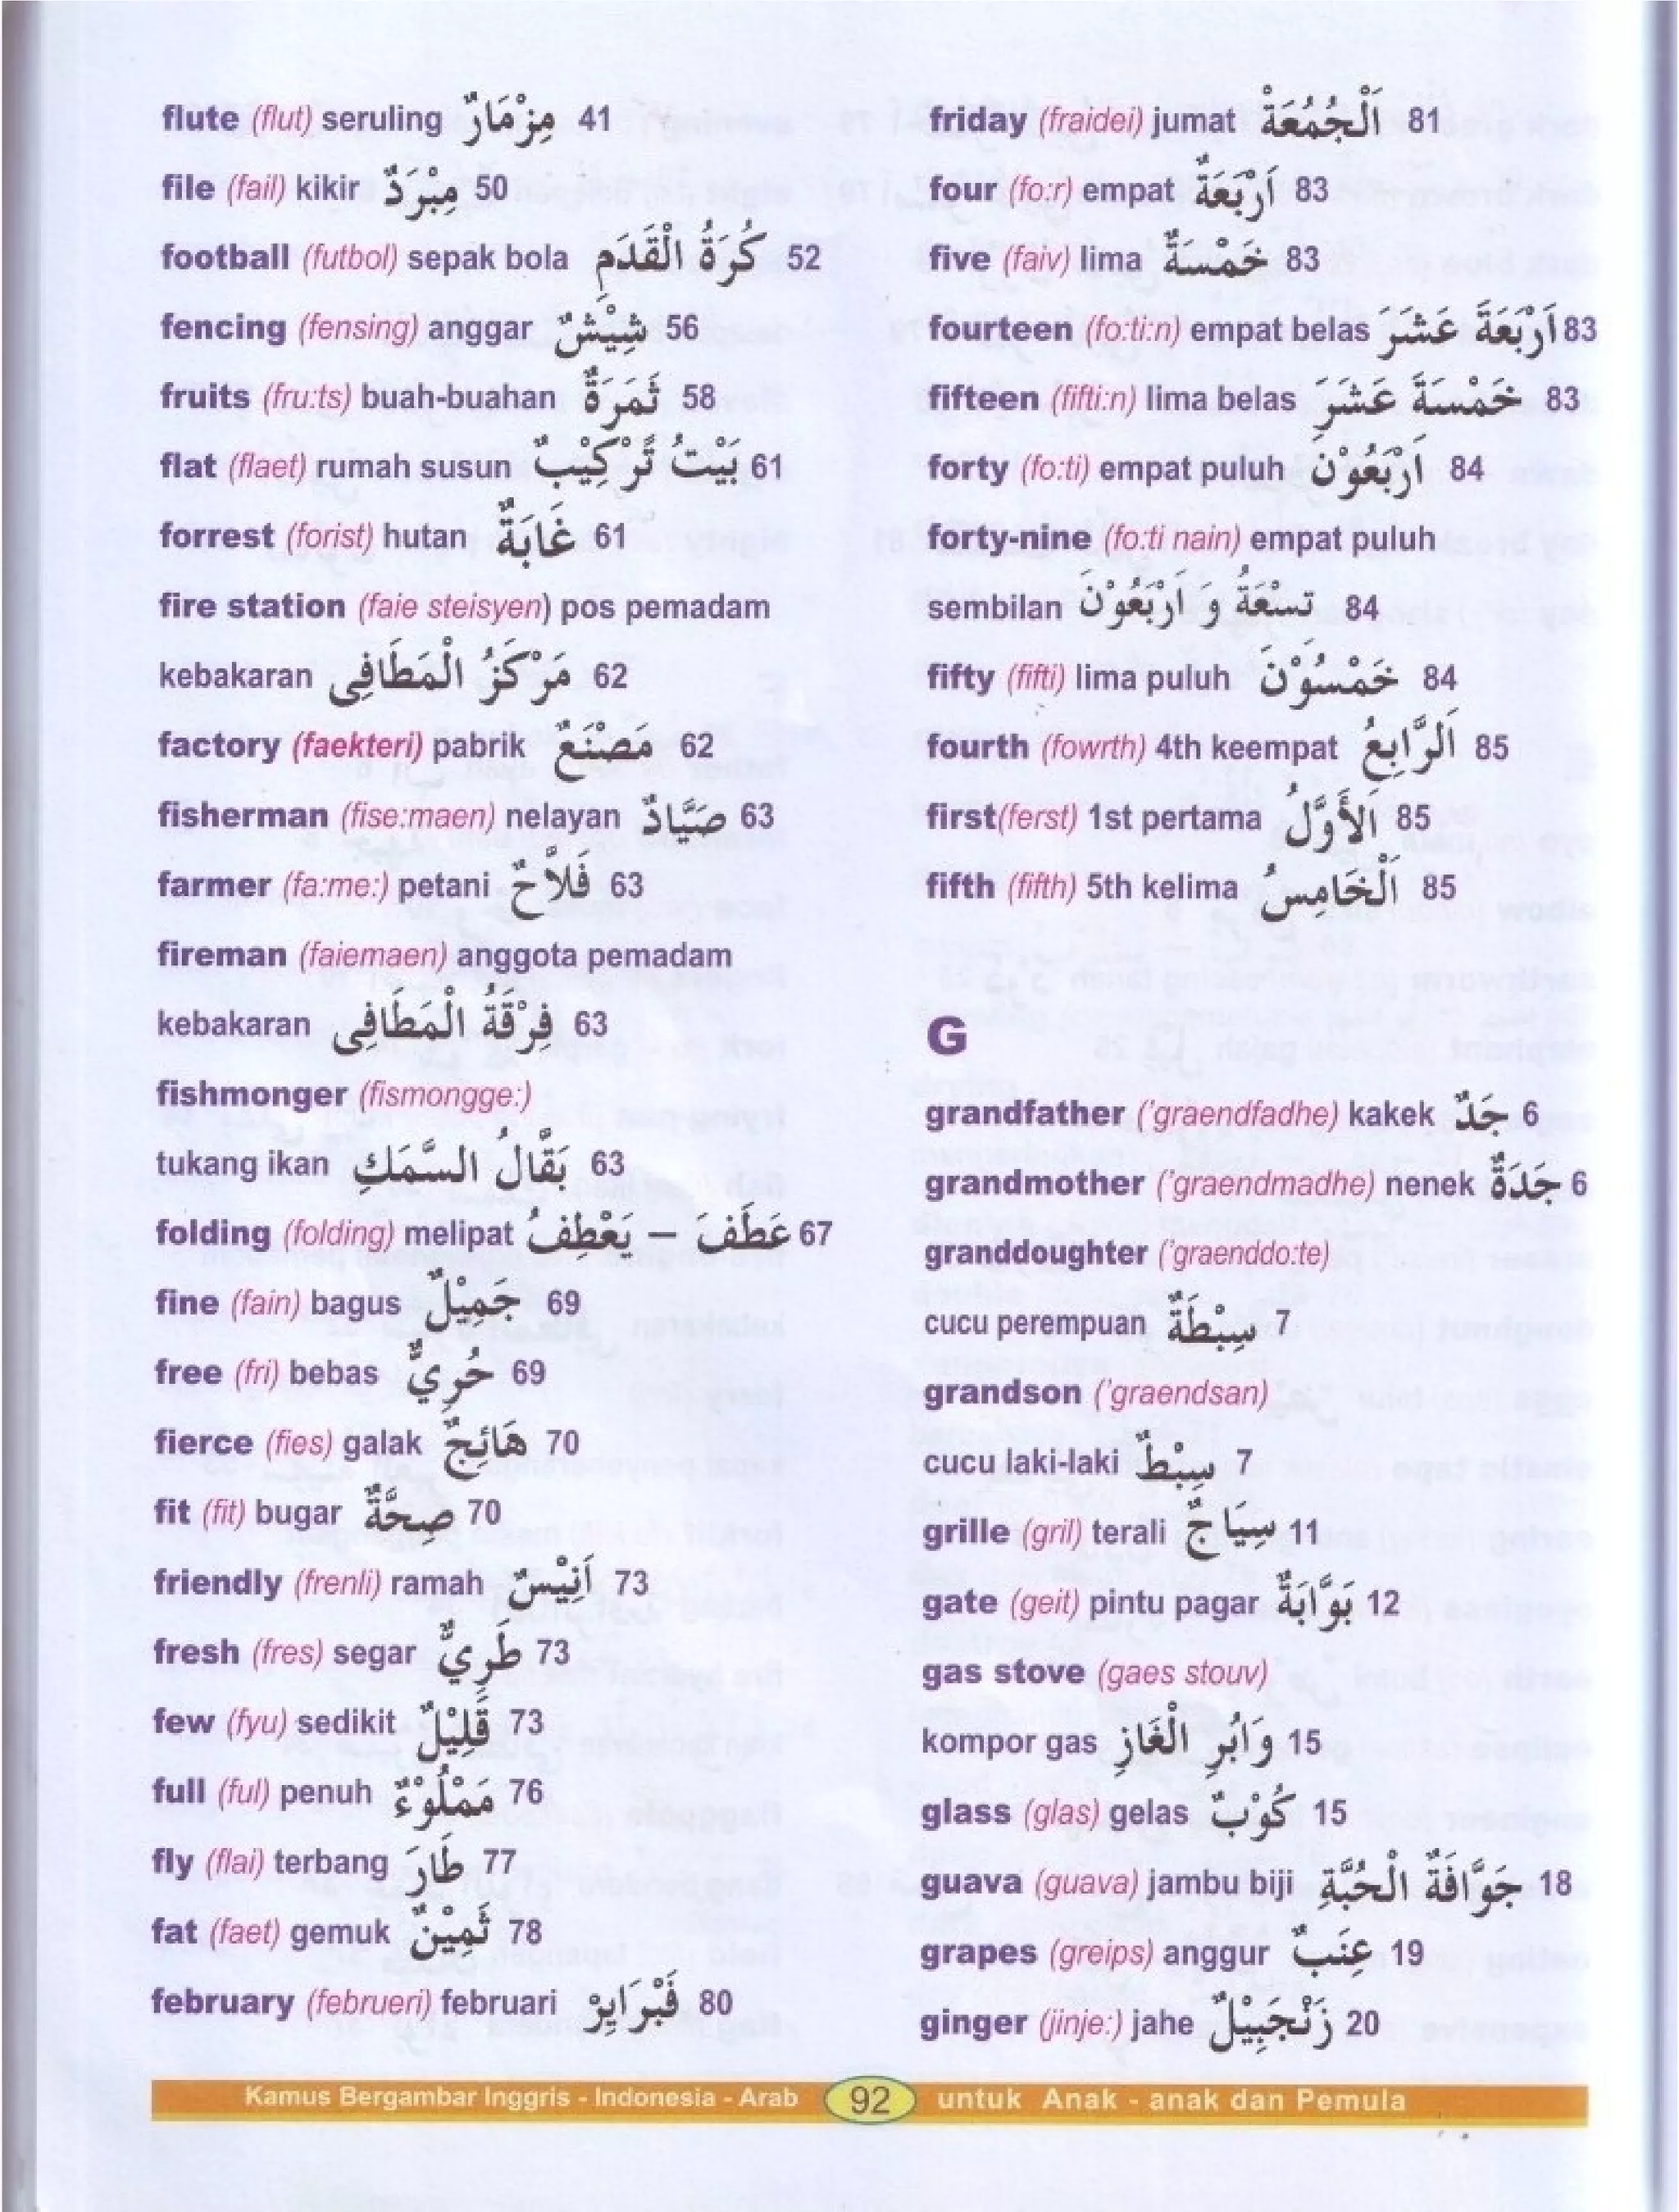 flute (flut) seruling مِزْمَارٌ 41
file (fail) kikir مِبْرَدٌ 50
football (futbol) sepak bola كُرَةُ الْقَدَمِ 52
fencing (fensing) anggar شِيْشٌ 56
fruits (fru:ts) buah-buahan ثَمَرَةٌ 58
flat (flaet) rumah susun بَيْتُ تَرْكِيْبٌ 61
forrest (forist) hutan غَابَةٌ 61
fire station (faie steisyen) pos pemadam
kebakaran مَرْكَزُ الْمَطَافِى 62
factory (faekteri) pabrik مَصْنَعٌ 62
fisherman (fise:maen) nelayan صَيَّادٌ 63
farmer (fa:me:) petani فَلاَّحٌ 63
fireman (faiemaen) anggota pemadam
kebakaran فِرْقَةُ الْمَطَافِى 63
fishmonger (fismongge:)
tukang ikan بَقَّالُ السَّمَكِ 63
folding (folding) melipat عَطَفَ – يَعْطِفُ 67
fine (fain) bagus جَمِيْلٌ 69
free (fri) bebas حُرِيٌّ 69
fierce (fies) galak هَائِجٌ 70
fit (fit) bugar صِحَّةٌ 70
friendly (frenli) ramah أَنِيْسٌ 73
fresh (fres) segar طَرِيٌّ 73
few (fyu) sedikit قَلِيْلٌ 73
full (ful) penuh مَمْلُوْءٌ 76
fly (flai) terbang طَارَ 77
fat (faet) gemuk ثَمِيْنٌ 78
february (februeri) februari فَبْرَايِرْ 80
friday (fraidei) jumat اَلْجُمُعَةْ 81
four (fo:r) empat أَرْبَعَةٌ 83
five (faiv) lima خَمْسَةٌ 83
fourteen (fo:ti:n) empat belas أَرْبَعَةَ عَشَرَ 83
fifteen (fifti:n) lima belas خَمْسَةَ عَشَرَ 83
forty (fo:ti) empat puluh اَرْبَعُوْنَ 84
forty-nine (fo:ti nain) empat puluh
sembilan تِسْعَةُ وَ اَرْبَعُوْنَ 84
fifty (fifti) lima puluh خَمْسُوْنَ 84
fourth (fowrth) 4th keempat اَلرَّابِعُ 85
first(ferst) 1st pertama اَلأَوَّلُ 85
fifth (fifth) 5th kelima اَلْخَامِسُ 85
G
grandfather ('graendfadhe) kakek جَدٌّ 6
grandmother ('graendmadhe) nenek جَدَةٌ 6
granddoughter ('graenddo:te)
cucu perempuan سِبْطَةٌ 7
grandson ('graendsan)
cucu laki-laki سِبْطٌ 7
grille (gril) terali سِيَاجٌ 11
gate (geit) pintu pagar بَوَّابَةٌ 12
gas stove (gaes stouv)
kompor gas وَابُرِ الْغَازِ 15
glass (glas) gelas كُوْبٌ 15
guava (guava) jambu biji جَوَّافَةٌ الْحُبَّةِ 18
grapes (greips) anggur عِنَبٌ 19
ginger (jinje:) jahe زَنْجَبِيْلٌ 20
Kamus Bergambar Inggris - Indonesia - Arab 92 untuk Anak - anak dan Pemula